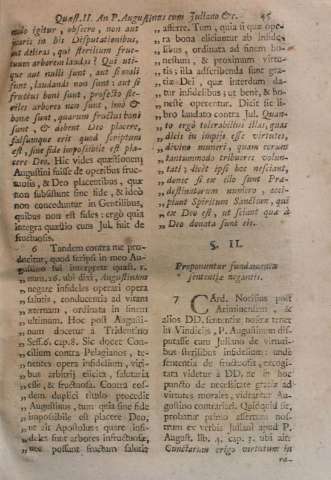 Quæst. II. An P. Augustinus cum Juliano &c.
malo igitur, obsecro, non aut
maris in his Disputationibus,
aut debras, qui sterilium fruc-
tuum arborem laudas? Qui uti-
que aut nulli sunt, aut si mali
sunt, laudandi non sunt: aut si
fructus boni sunt, profecto ste-
riles arbores non sunt, imò &
bonæ sunt, quarum fructus boni
sunt, & debent Deo placere,
falsumque erit quod scriptum
est, sine fide impossibile est pla-
cere Deo. Hic vides quæstionem
Augustini fuisse de operibus fruc-
tuosis, & Deo placentibus, quæ
non subsistunt sine fide, & ideò
non conceduntur in Gentilibus,
quibus non est fides: ergò quia
integra quæstio cum Jul. fuit de
fructuosis.
6 Tandem contra me pro-
ducitur, quod scripsi in meo Au-
gustino sui interprete quæst. 1.
num. 16. ubi dixi, Augustinum
negare infideles operari opera
salutis, conducentia ad vitam
æternam, ordinata in finem
ultimum. Hoc post Augusti-
num docetur à Tridentino
Sess. 6. cap. 8. Sic docet Con-
cilium contra Pelagianos, te-
nentes opera infidelium, vigi-
bus arbitrij elicita, salutaria
esse, & fructuosa. Contra eos-
dem duplici titulo procedit
Augustinus, tum quia sine fide
impossibile est placere Deo,
ut ait Apostolus: quare infi-
deles sunt arbores infructuosæ,
nec possunt fructum salutis
afferre. Tum, quia si quæ ope-
ra bona eliciuntur ab infide-
libus, ordinata ad finem ho-
nestum, & proximum virtu-
tis; illa adscribenda sunt gra-
tiæ Dei, quæ interdum da-
tur infidelibus; ut benè, & ho-
nestè operentur. Dicit sic li-
bro laudato contra Jul. Quan-
to ergò tolerabilius illas, quas
dicis in impijs esse virtutes,
divino muneri, quam eorum
tantummodo tribueres volun-
tati; licet ipsi hoc nesciant,
donec si ex illo sunt Præ-
destinatorum numero, acci-
piant Spiritum Sanctum, qui
ex Deo est, ut sciant quæ à
Deo donata sunt eis.
§. II.
Proponuntur fundamenta
sententiæ negantis.
7 CArd. Norisius post
Ariminensem, &
alios DD. sententiæ nostræ tenet
in Vindicijs, P. Augustinum dis-
putasse cum Juliano de virtuti-
bus sterilibus infidelium: undè
sententia de fructuosis, excogi-
tata videtur à DD. ne in hoc
puncto de necessitate gratiæ ad
virtutes morales, videantur Au-
gustino contrarij. Quidquid sit,
probatur primo assertum nos-
trum ex verbis Juliani apud P.
August. lib. 4. cap. 3. ubi ait:
Cunctarum origo virtutum in
ra-